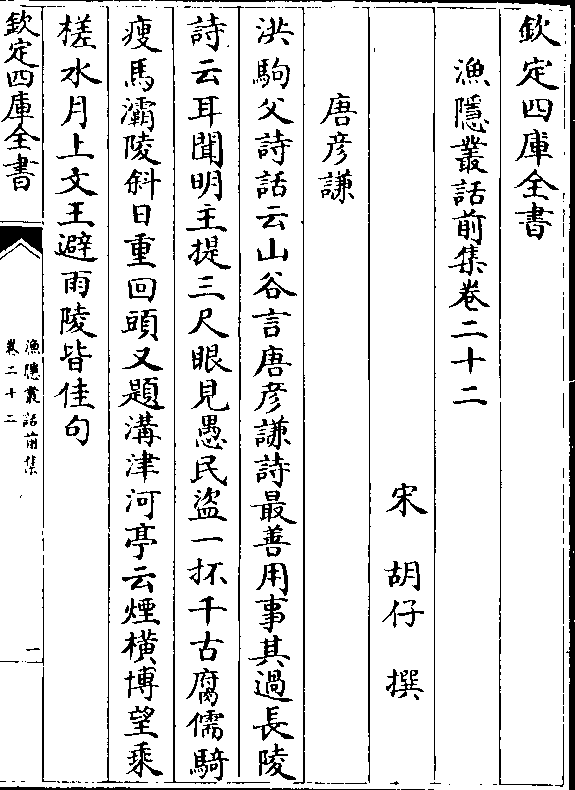 欽定四庫全書
漁隱叢話前集卷二十二
宋 胡仔 撰
唐彦謙
洪駒父詩話云山谷言唐彦謙詩最善用事其過長陵
詩云耳聞明主提三尺眼見愚民盜一抔千古腐儒騎
瘦馬灞陵斜日重回頭又題溝津河亭云煙橫博望乘
槎水月上文王避雨陵皆佳句
欽定四庫全書
漁隱叢話前集
卷二十二
一